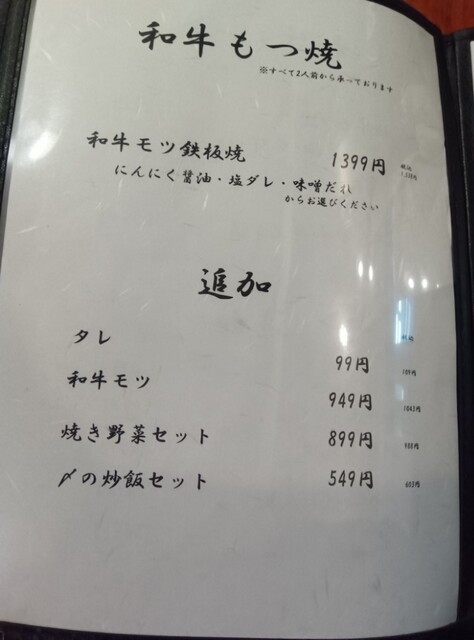 和牛もつ焼
※すべて2人前から承っております
和牛モツ鉄板焼 1399円 税込
にんにく醤油・塩ダレ・味噌だれ
からお選びください
追加
タレ 99円 109円
和牛モツ 949円 1043円
焼き野菜セット 899円 988円
〆の炒飯セット 549円 603円